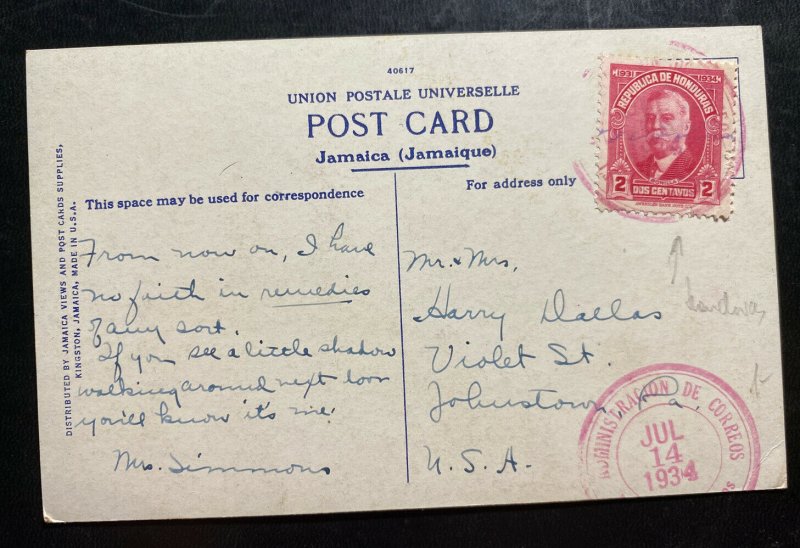 40617
UNION POSTALE UNIVERSELLE
POST CARD
Jamaica (Jamaique)
This space may be used for correspondence
For address only
DISTRIBUTED BY JAMAICA VIEWS AND POST CARDS SUPPLIES,
KINGSTON, JAMAICA, MADE IN U.S.A.
From now on, I have
no faith in remedies
of any sort.
If you see a little shadow
walking around next door
you'll know it's me!
Mrs. Simmons
Mr. & Mrs,
Harry Dallas
Violet St.
Johnstown, Pa.
U.S.A.
1931 1934
REPUBLICA DE HONDURAS
2 DOS CENTAVOS 2
ADMINISTRACION DE CORREOS
JUL
14
1934